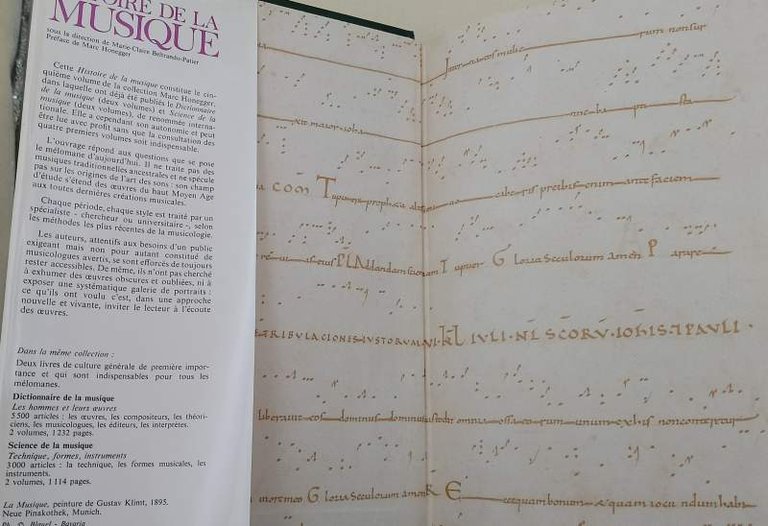 OIRE DE LA
MUSIQUE
sous la direction de Marie-Claire Beltrando-Patier
Préface de Marc Honegger
Cette Histoire de la musique constitue le cin-
quième volume de la collection Marc Honegger,
dans laquelle ont déjà été publiés le Dictionnaire
de la musique (deux volumes) et Science de la
musique (deux volumes), de renommée interna-
tionale. Elle a cependant son autonomie et peut
être lue avec profit sans que la consultation des
quatre premiers volumes soit indispensable.
L'ouvrage répond aux questions que se pose
le mélomane d'aujourd'hui. Il ne traite pas des
musiques traditionnelles ancestrales et ne spécule
pas sur les origines de l'art des sons : son champ
d'étude s'étend des œuvres du haut Moyen Age
aux toutes dernières créations musicales.
Chaque période, chaque style est traité par un
spécialiste - chercheur ou universitaire -, selon
les méthodes les plus récentes de la musicologie.
Les auteurs, attentifs aux besoins d'un public
exigeant mais non pour autant constitué de
musicologues avertis, se sont efforcés de toujours
rester accessibles. De même, ils n'ont pas cherché
à exhumer des œuvres obscures et oubliées, ni à
exposer une systématique galerie de portraits :
ce qu'ils ont voulu c'est, dans une approche
nouvelle et vivante, inviter le lecteur à l'écoute
des œuvres.
Dans la même collection :
Deux livres de culture générale de première impor-
tance et qui sont indispensables pour tous les
mélomanes.
Dictionnaire de la musique
Les hommes et leurs œuvres
5 500 articles : les œuvres, les compositeurs, les théori-
ciens, les musicologues, les éditeurs, les interprètes.
2 volumes, 1 232 pages.
Science de la musique
Technique, formes, instruments
3 000 articles : la technique, les formes musicales, les
instruments.
2 volumes, 1 114 pages.
La Musique, peinture de Gustav Klimt, 1895.
Neue Pinakothek, Munich.
Ph. © Blauel - Bavaria
Inter natos mulie rum non sur
xit maior ioha nne bap tis ta
COM Tu puer propheta altis
PSA Tu puer Gloria seculorum amen P
TRIBULACIONES IUSTORUM VI KL IULI NL SCORU IOHIS PAULI
liberavit eos dominus dominus custodit omnia ossa eorum unum ex his non conteretur
Gloria seculorum amen E cce quam bonum et quam iocundum habi